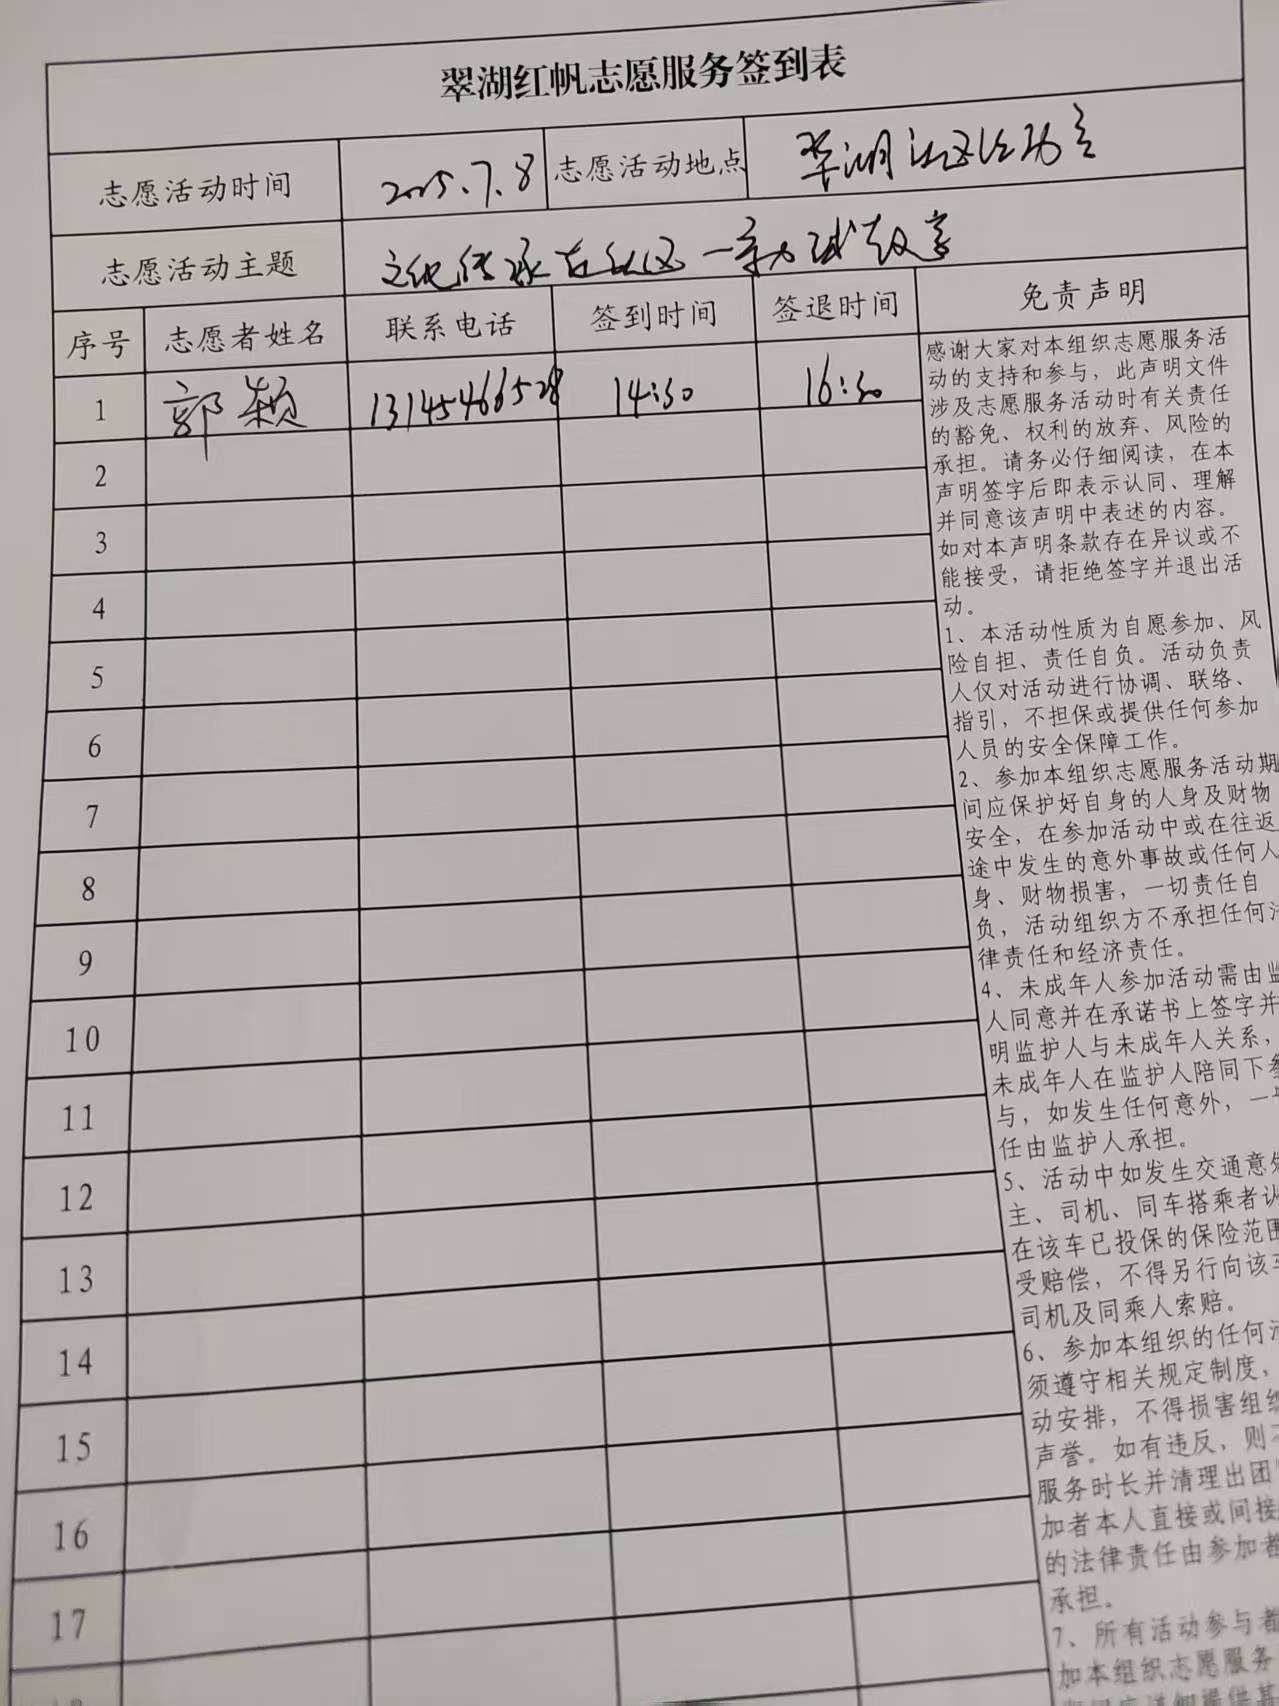 翠湖红帆志愿服务签到表
志愿活动时间 2025.7.8 志愿活动地点 翠湖社区活动室
志愿活动主题 文化传承在社区
序号 志愿者姓名 联系电话 签到时间 签退时间 免责声明
1 郭颖 13145466528 14:30 16:30
2
3
4
5
6
7
8
9
10
11
12
13
14
15
16
17
感谢大家对本组织志愿服务活
动的支持和参与，此声明文件
涉及志愿服务活动时有关责任
的豁免、权利的放弃、风险的
承担。请务必仔细阅读，在本
声明签字后即表示认同、理解
并同意该声明中表述的内容。
如对本声明条款存在异议或不
能接受，请拒绝签字并退出活
动。
1、本活动性质为自愿参加、风
险自担、责任自负。活动负责
人仅对活动进行协调、联络、
指引，不担保或提供任何参加
人员的安全保障工作。
2、参加本组织志愿服务活动期
间应保护好自身的人身及财物
安全，在参加活动中或在往返
途中发生的意外事故或任何人
身、财物损害，一切责任自
负，活动组织方不承担任何法
律责任和经济责任。
4、未成年人参加活动需由监
人同意并在承诺书上签字并
明监护人与未成年人关系，
未成年人在监护人陪同下参
与，如发生任何意外，一切
任由监护人承担。
5、活动中如发生交通意外
主、司机、同车搭乘者认
在该车已投保的保险范围
受赔偿，不得另行向该车
司机及同乘人索赔。
6、参加本组织的任何活
须遵守相关规定制度，
动安排，不得损害组织
声誉。如有违反，则不
服务时长并清理出团
加者本人直接或间接
的法律责任由参加者
承担。
7、所有活动参与者
加本组织志愿服务